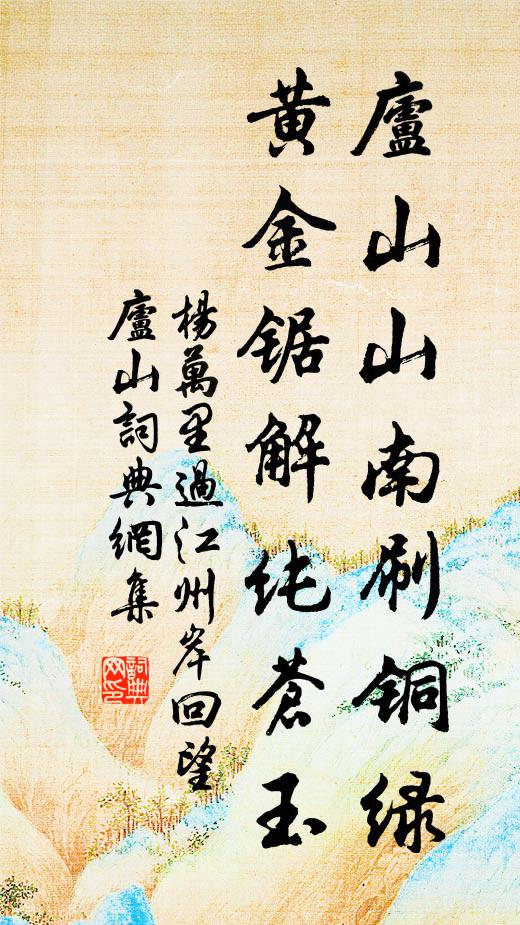 廬山山南刷铜绿
黄金锯解纯蒼玉
楊萬里過江州岸回望
廬山詞典網集
詞典
网印